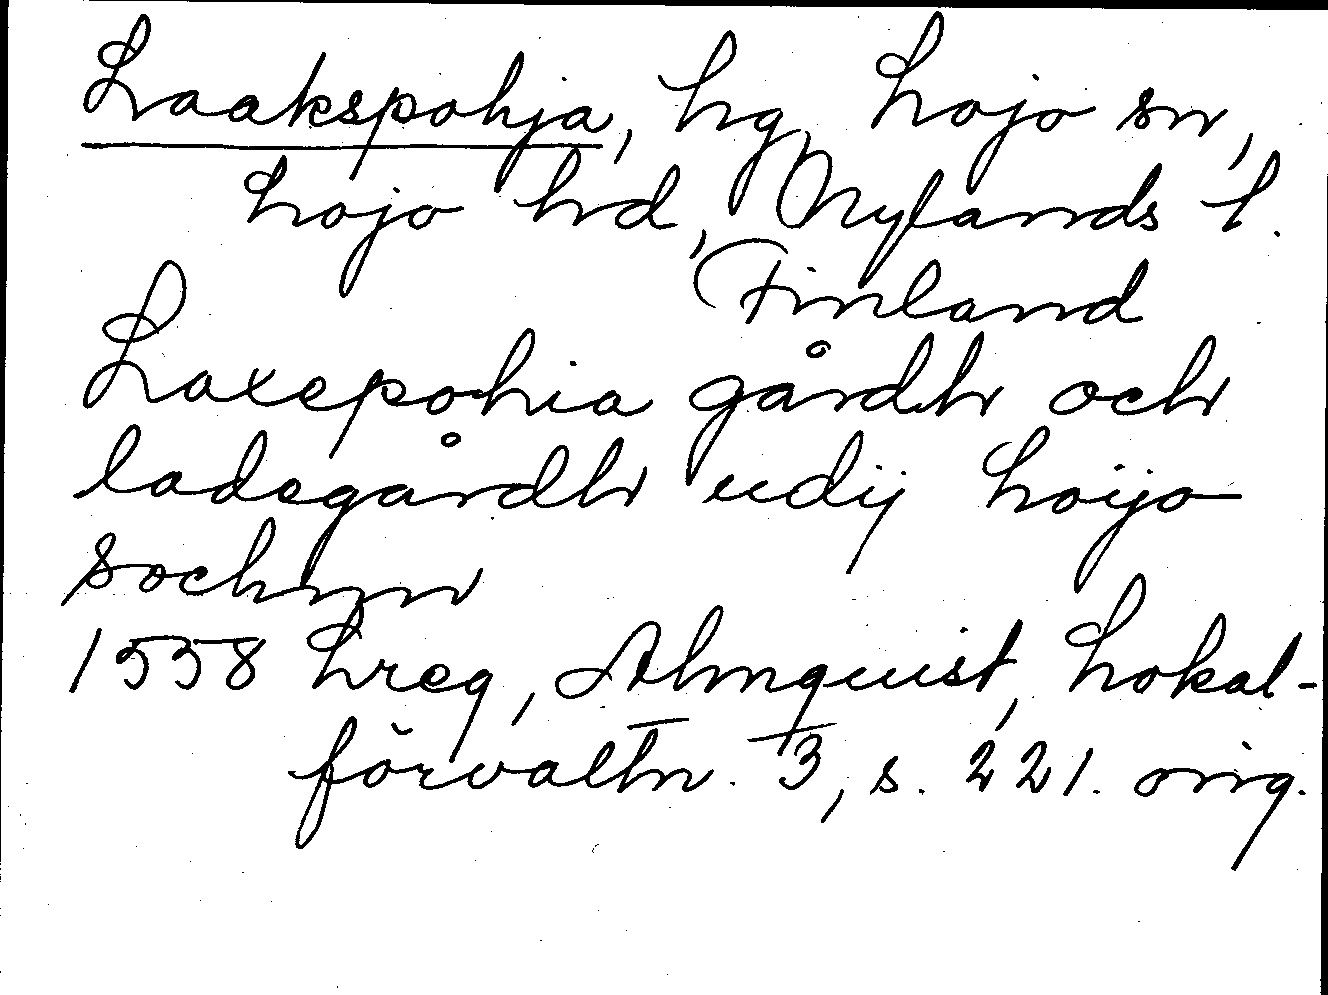 Laakspohja, hg, Lojo sn,
Lojo hd, Nylands l.
Finland
Laxepohia gårdh och
ladegårdh udij Loijo
Sochnn
1558 Lreg, Almquist, Lokal-
förvaltn. 3, s. 221. orig.